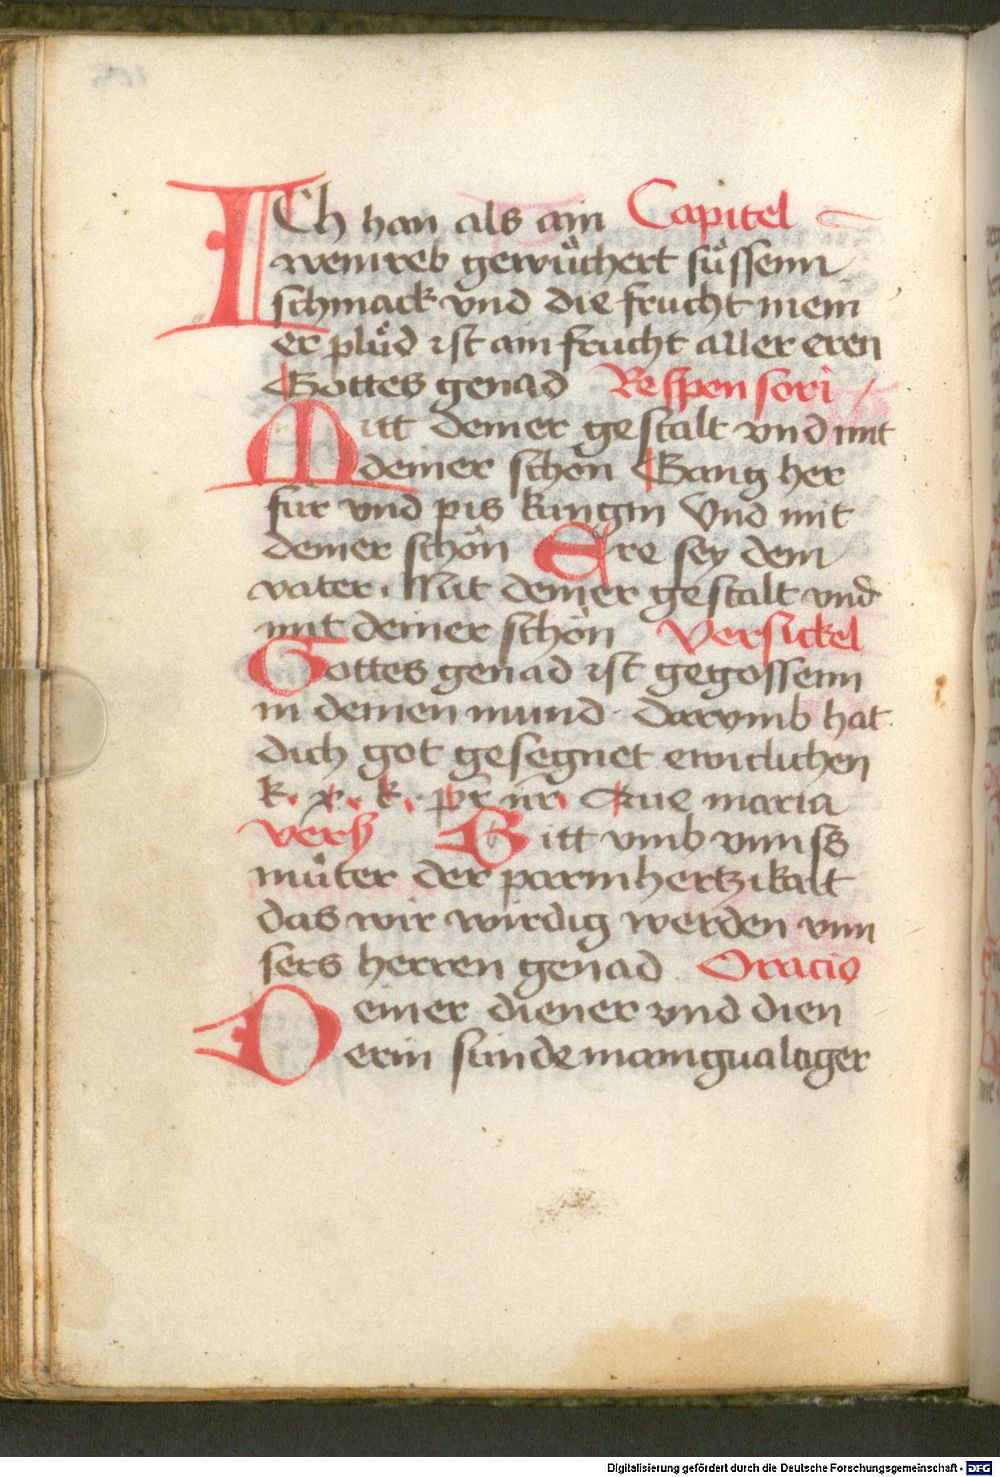 ICh han als ain Capitel
weinreb gewuͤchert suͤssenn
schmack vnd die frucht mein
er pluͤd ist ain frucht aller eren
Gottes genad Respensori
Mitt deiner gestalt vnd mit
deiner schoͤn Gang her
fur vnd pis kungin Vnd mit
deiner schoͤn Ere sey dem
vater. Mit deiner gestalt vnd
mit deiner schoͤn Versickel
Gottes genad ist gegossenn
in deinen mund. darvmb hat
dich got gesegnet ewiclichen
k. x. k. pr nr Aue maria
Vers Bitt vmb vnnss
muͤter der parmhertzikait
das wir wirdig werden vnn
sers herren genad Oracio
Deiner diener vnd dien
erin sunde mangualtiger
Digitalisierung gefördert durch die Deutsche Forschungsgemeinschaft - DFG